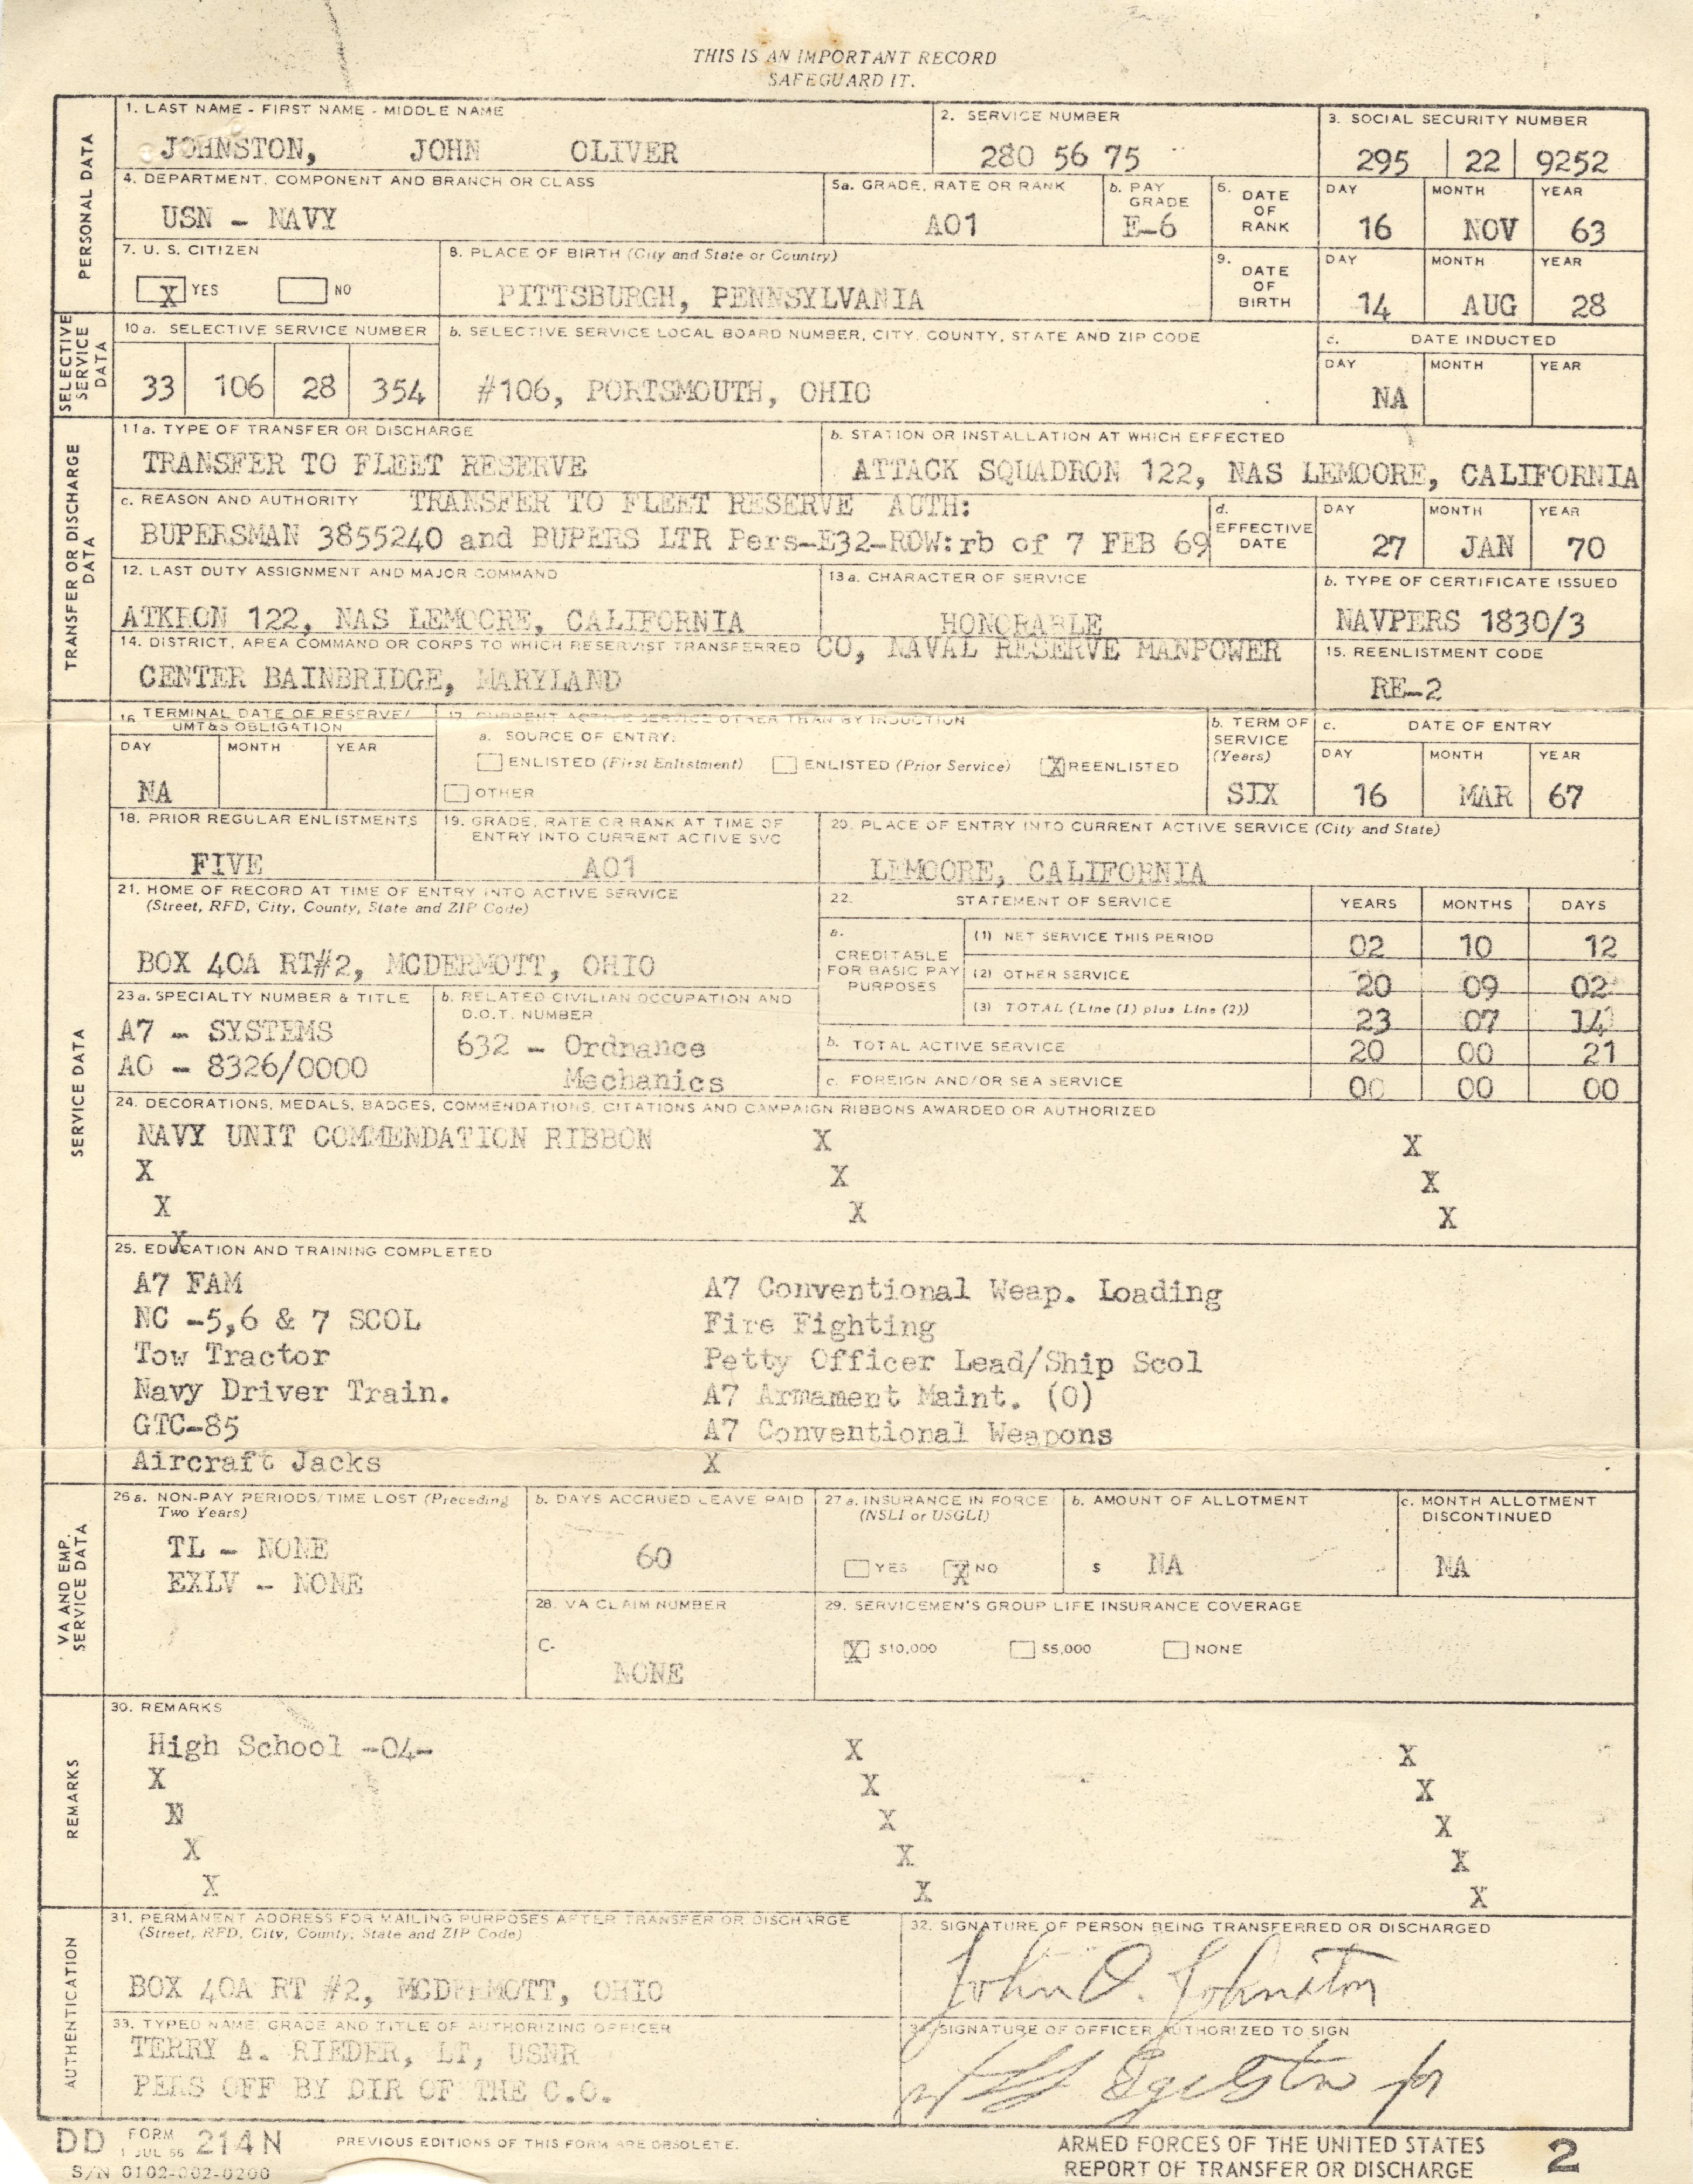 THIS IS AN IMPORTANT RECORD
SAFEGUARD IT.
PERSONAL DATA
1. LAST NAME - FIRST NAME - MIDDLE NAME
JOHNSTON, JOHN OLIVER
2. SERVICE NUMBER
280 56 75
3. SOCIAL SECURITY NUMBER
295 22 9252
4. DEPARTMENT, COMPONENT AND BRANCH OR CLASS
USN - NAVY
5a. GRADE, RATE OR RANK
AO1
b. PAY GRADE
E-6
6. DATE OF RANK
DAY MONTH YEAR
16 NOV 63
7. U. S. CITIZEN
X YES NO
8. PLACE OF BIRTH (City and State or Country)
PITTSBURGH, PENNSYLVANIA
9. DATE OF BIRTH
DAY MONTH YEAR
14 AUG 28
SELECTIVE SERVICE DATA
10a. SELECTIVE SERVICE NUMBER
33 106 28 354
b. SELECTIVE SERVICE LOCAL BOARD NUMBER, CITY, COUNTY, STATE AND ZIP CODE
#106, PORTSMOUTH, OHIO
c. DATE INDUCTED
DAY MONTH YEAR
NA
TRANSFER OR DISCHARGE DATA
11a. TYPE OF TRANSFER OR DISCHARGE
TRANSFER TO FLEET RESERVE
b. STATION OR INSTALLATION AT WHICH EFFECTED
ATTACK SQUADRON 122, NAS LEMOORE, CALIFORNIA
c. REASON AND AUTHORITY TRANSFER TO FLEET RESERVE AUTH:
BUPERSMAN 3855240 and BUPERS LTR Pers-E32-ROW:rb of 7 FEB 69
d. EFFECTIVE DATE
DAY MONTH YEAR
27 JAN 70
12. LAST DUTY ASSIGNMENT AND MAJOR COMMAND
ATKRON 122, NAS LEMOORE, CALIFORNIA
13a. CHARACTER OF SERVICE
HONORABLE
b. TYPE OF CERTIFICATE ISSUED
NAVPERS 1830/3
14. DISTRICT, AREA COMMAND OR CORPS TO WHICH RESERVIST TRANSFERRED CO, NAVAL RESERVE MANPOWER
CENTER BAINBRIDGE, MARYLAND
15. REENLISTMENT CODE
RE-2
SERVICE DATA
16. TERMINAL DATE OF RESERVE/
UMT&S OBLIGATION
DAY MONTH YEAR
NA
17. CURRENT ACTIVE SERVICE OTHER THAN BY INDUCTION
a. SOURCE OF ENTRY:
ENLISTED (First Enlistment) ENLISTED (Prior Service) X REENLISTED
OTHER
b. TERM OF SERVICE (Years)
SIX
c. DATE OF ENTRY
DAY MONTH YEAR
16 MAR 67
18. PRIOR REGULAR ENLISTMENTS
FIVE
19. GRADE, RATE OR RANK AT TIME OF
ENTRY INTO CURRENT ACTIVE SVC
AO1
20. PLACE OF ENTRY INTO CURRENT ACTIVE SERVICE (City and State)
LEMOORE, CALIFORNIA
21. HOME OF RECORD AT TIME OF ENTRY INTO ACTIVE SERVICE
(Street, RFD, City, County, State and ZIP Code)
BOX 40A RT#2, MCDERMOTT, OHIO
22. STATEMENT OF SERVICE YEARS MONTHS DAYS
a. CREDITABLE FOR BASIC PAY PURPOSES
(1) NET SERVICE THIS PERIOD 02 10 12
(2) OTHER SERVICE 20 09 02
(3) TOTAL (Line (1) plus Line (2)) 23 07 14
b. TOTAL ACTIVE SERVICE 20 00 21
c. FOREIGN AND/OR SEA SERVICE 00 00 00
23a. SPECIALTY NUMBER & TITLE
A7 - SYSTEMS
AO - 8326/0000
b. RELATED CIVILIAN OCCUPATION AND
D.O.T. NUMBER
632 - Ordnance
Mechanics
24. DECORATIONS, MEDALS, BADGES, COMMENDATIONS, CITATIONS AND CAMPAIGN RIBBONS AWARDED OR AUTHORIZED
NAVY UNIT COMMENDATION RIBBON X X
X X X
X X X
X
25. EDUCATION AND TRAINING COMPLETED
A7 FAM A7 Conventional Weap. Loading
NC -5,6 & 7 SCOL Fire Fighting
Tow Tractor Petty Officer Lead/Ship Scol
Navy Driver Train. A7 Armament Maint. (O)
GTC-85 A7 Conventional Weapons
Aircraft Jacks X
VA AND EMP. SERVICE DATA
26a. NON-PAY PERIODS/TIME LOST (Preceding
Two Years)
TL - NONE
EXLV - NONE
b. DAYS ACCRUED LEAVE PAID
60
27a. INSURANCE IN FORCE
(NSLI or USGLI)
YES X NO
b. AMOUNT OF ALLOTMENT
$ NA
c. MONTH ALLOTMENT
DISCONTINUED
NA
28. VA CLAIM NUMBER
C-
NONE
29. SERVICEMEN'S GROUP LIFE INSURANCE COVERAGE
X $10,000 $5,000 NONE
REMARKS
30. REMARKS
High School -04- X X
X X X
N X X
X X X
X X X
AUTHENTICATION
31. PERMANENT ADDRESS FOR MAILING PURPOSES AFTER TRANSFER OR DISCHARGE
(Street, RFD, City, County, State and ZIP Code)
BOX 40A RT #2, MCDERMOTT, OHIO
32. SIGNATURE OF PERSON BEING TRANSFERRED OR DISCHARGED
John O. Johnston
33. TYPED NAME, GRADE AND TITLE OF AUTHORIZING OFFICER
TERRY A. RIEDER, LT, USNR
PERS OFF BY DIR OF THE C.O.
34. SIGNATURE OF OFFICER AUTHORIZED TO SIGN
DD FORM 1 JUL 66 214 N
S/N 0102-002-0200
PREVIOUS EDITIONS OF THIS FORM ARE OBSOLETE.
ARMED FORCES OF THE UNITED STATES
REPORT OF TRANSFER OR DISCHARGE
2